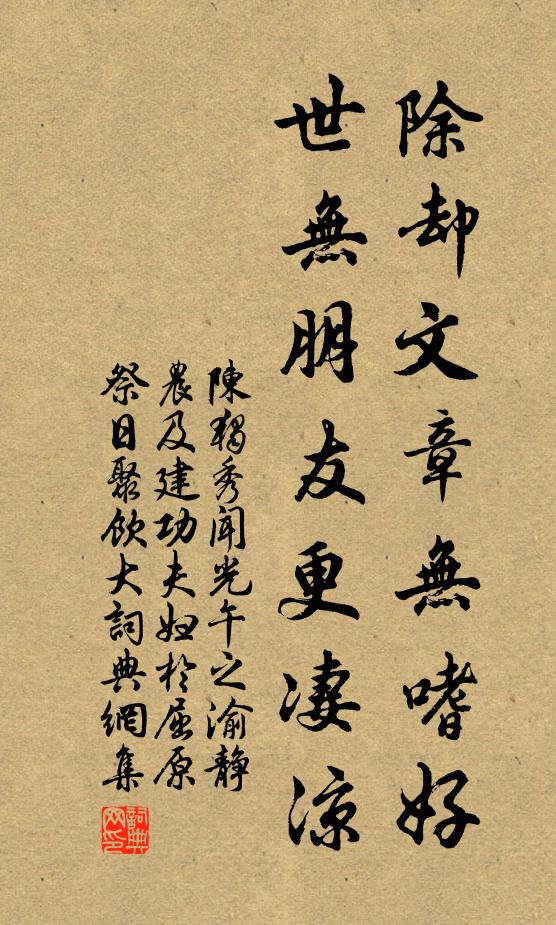 除却文章無嗜好
世無朋友更凄涼
陳獨秀聞光午之渝静
農及建功夫妇於屈原
祭日聚飲大詞典網集
詞典網印